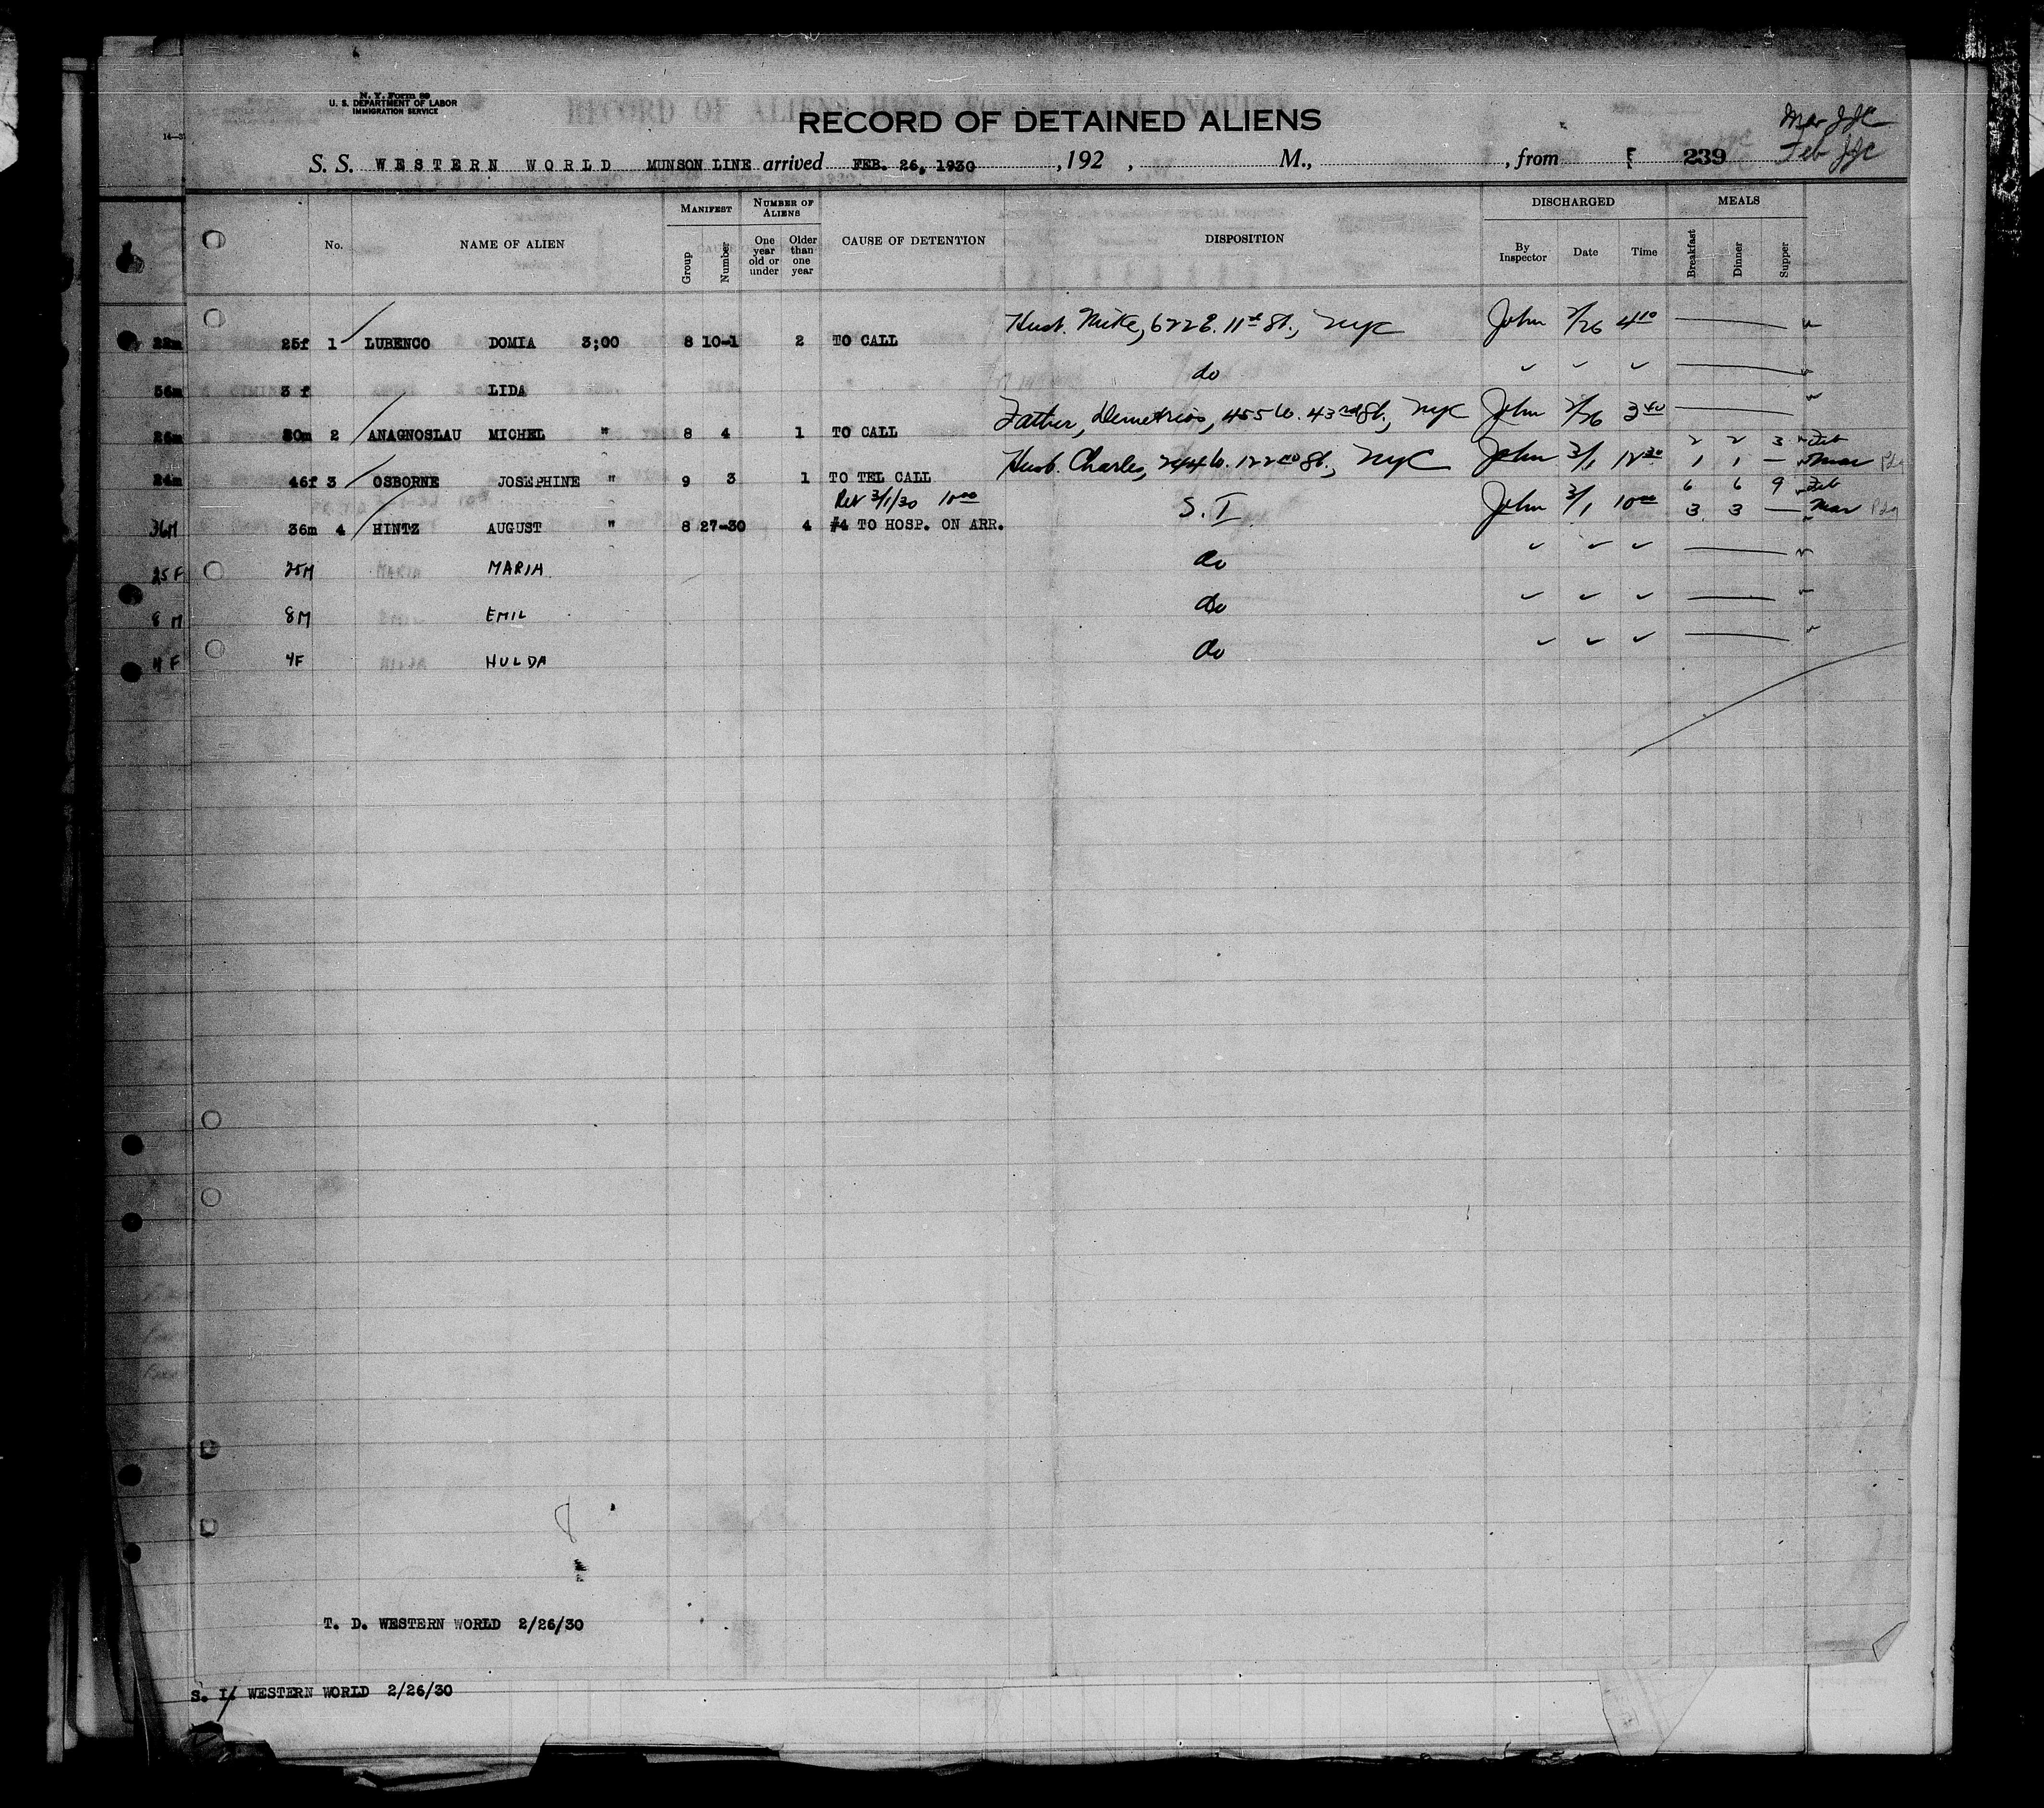 N. Y. Form 89
U. S. DEPARTMENT OF LABOR
IMMIGRATION SERVICE
RECORD OF DETAINED ALIENS
Mar JJC
Feb JJC
S. S. WESTERN WORLD MUNSON LINE arrived FEB. 26, 1930, 192 , M., , from 239
No. NAME OF ALIEN MANIFEST Group Number NUMBER OF ALIENS One year old or under Older than one year CAUSE OF DETENTION DISPOSITION DISCHARGED By Inspector Date Time MEALS Breakfast Dinner Supper
22m 25f 1 LUBENCO DOMIA 3;00 8 10-1 2 TO CALL Husb. Mike, 622 E. 11th St., NYC John 2/26 4 10
56m 3 f LIDA do ✓ ✓ ✓
26m 30m 2 ANAGNOSLAU MICHEL " 8 4 1 TO CALL Father, Demetrios, 455 W. 43rd St., NYC John 2/26 3 40
24m 46f 3 OSBORNE JOSEPHINE " 9 3 1 TO TEL CALL Husb. Charles, 244 W. 122nd St., NYC John 3/1 12 30 2 2 3 Feb
1 1 — Mar
Rev 3/1/30 10 00
36M 36m 4 HINTZ AUGUST " 8 27-30 4 #4 TO HOSP. ON ARR. S. I. John 3/1 10 00 6 6 9 Feb
3 3 — Mar
25F 25M MARIA do ✓ ✓ ✓
8 M 8M EMIL do ✓ ✓ ✓
4 F 4F HULDA do ✓ ✓ ✓
8
T. D. WESTERN WORLD 2/26/30
S. I. WESTERN WORLD 2/26/30